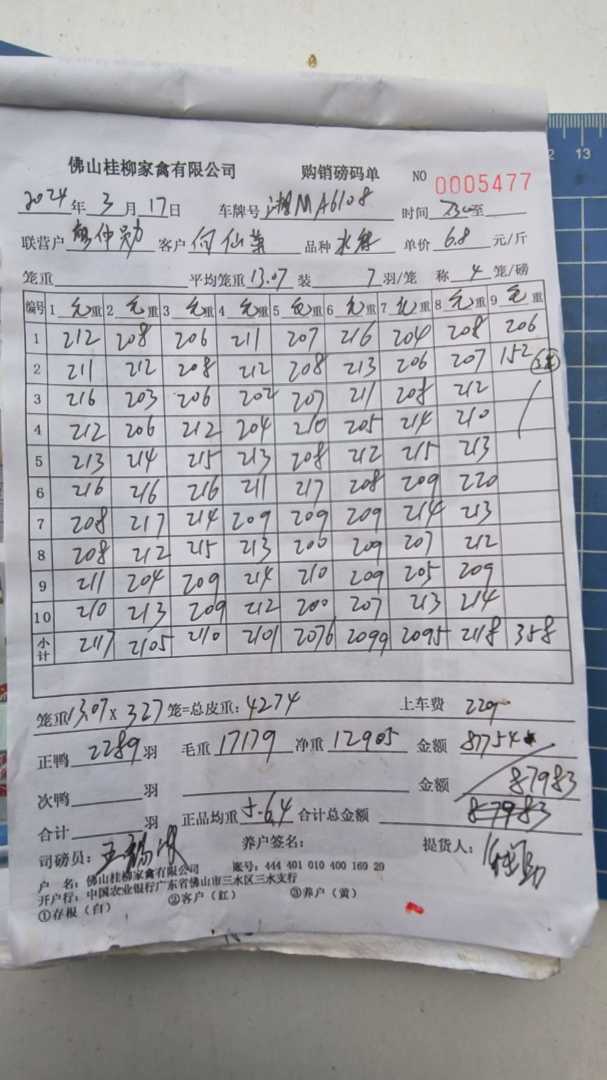 佛山桂柳家禽有限公司 购销磅码单 NO 0005477
2024年3月17日 车牌号 湘MA6108 时间 至
联营户 客户 何仙 品种 水 单价 6.8 元/斤
笼重 平均笼重 13.07 装 7 羽/笼 称 4 笼/磅
编号 1 毛重 2 毛重 3 毛重 4 毛重 5 毛重 6 毛重 7 毛重 8 毛重 9 毛重
1 212 208 206 211 207 216 204 208 206
2 211 212 208 212 208 213 206 207 152
3 216 203 206 202 207 211 208 212
4 212 206 212 204 210 205 214 210
5 213 214 215 213 208 212 215 213
6 216 216 216 211 217 208 209 220
7 208 217 214 209 209 209 214 213
8 208 212 215 213 200 209 207 212
9 211 204 209 214 210 209 205 209
10 210 213 209 212 200 207 213 214
小计 2117 2105 2110 2101 2076 2099 2095 2118 358
笼重 13.07 X 327 笼=总皮重: 4274 上车费 229
正鸭 2289 羽 毛重 17179 净重 12905 金额 87754
次鸭 羽 金额 87983
合计 羽 正品均重 5.64 合计总金额 87983
司磅员: 王 养户签名: 提货人:
户 名: 佛山桂柳家禽有限公司 账号: 444 401 010 400 169 20
开户行: 中国农业银行广东省佛山市三水区三水支行
①存根（白） ②客户（红） ③养户（黄）